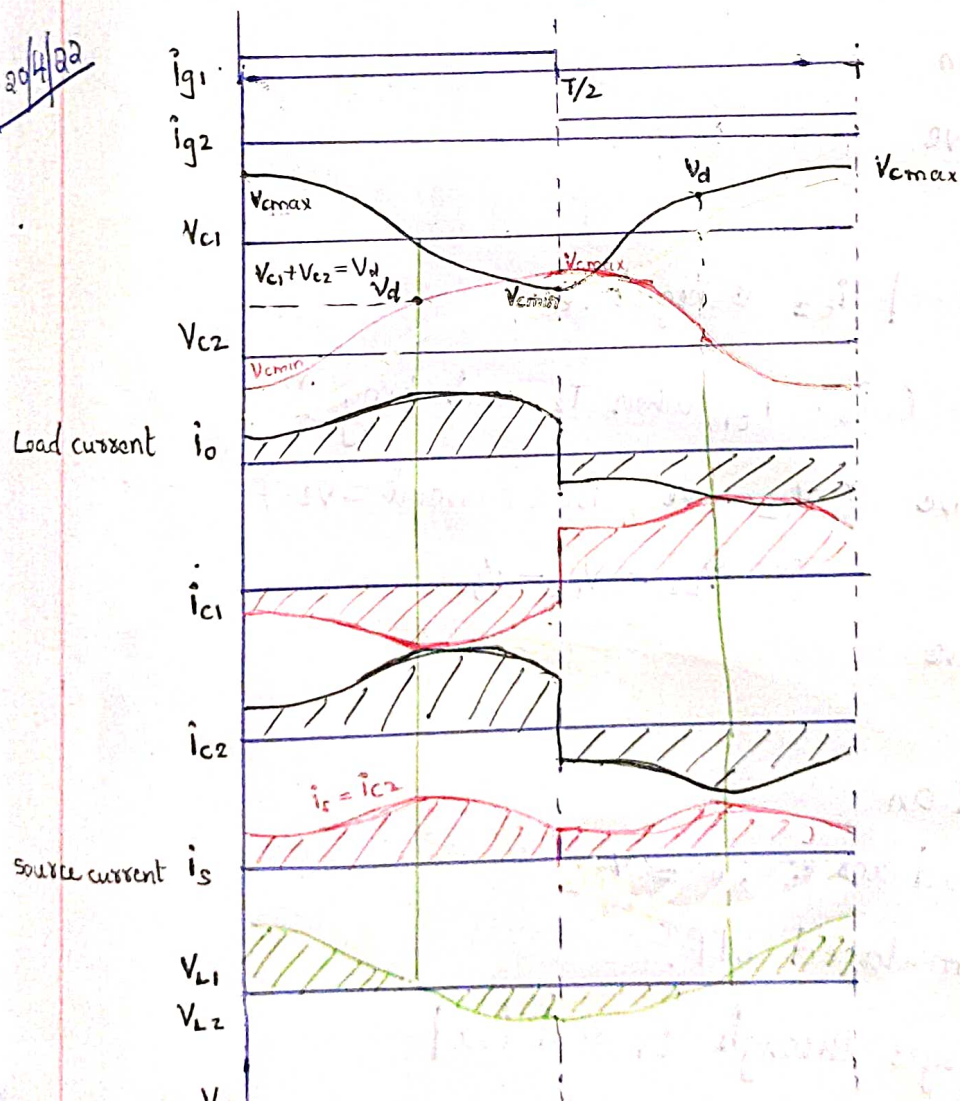 20/4/22
ig1
T/2
T
ig2
Vcmax
Vd
Vcmax
Vc1
Vc1+Vc2 = Vd
Vd
Vcmax
Vcmin
Vc2
Vcmin
Load current io
ic1
ic2
is = ic2
Source current is
VL1
VL2